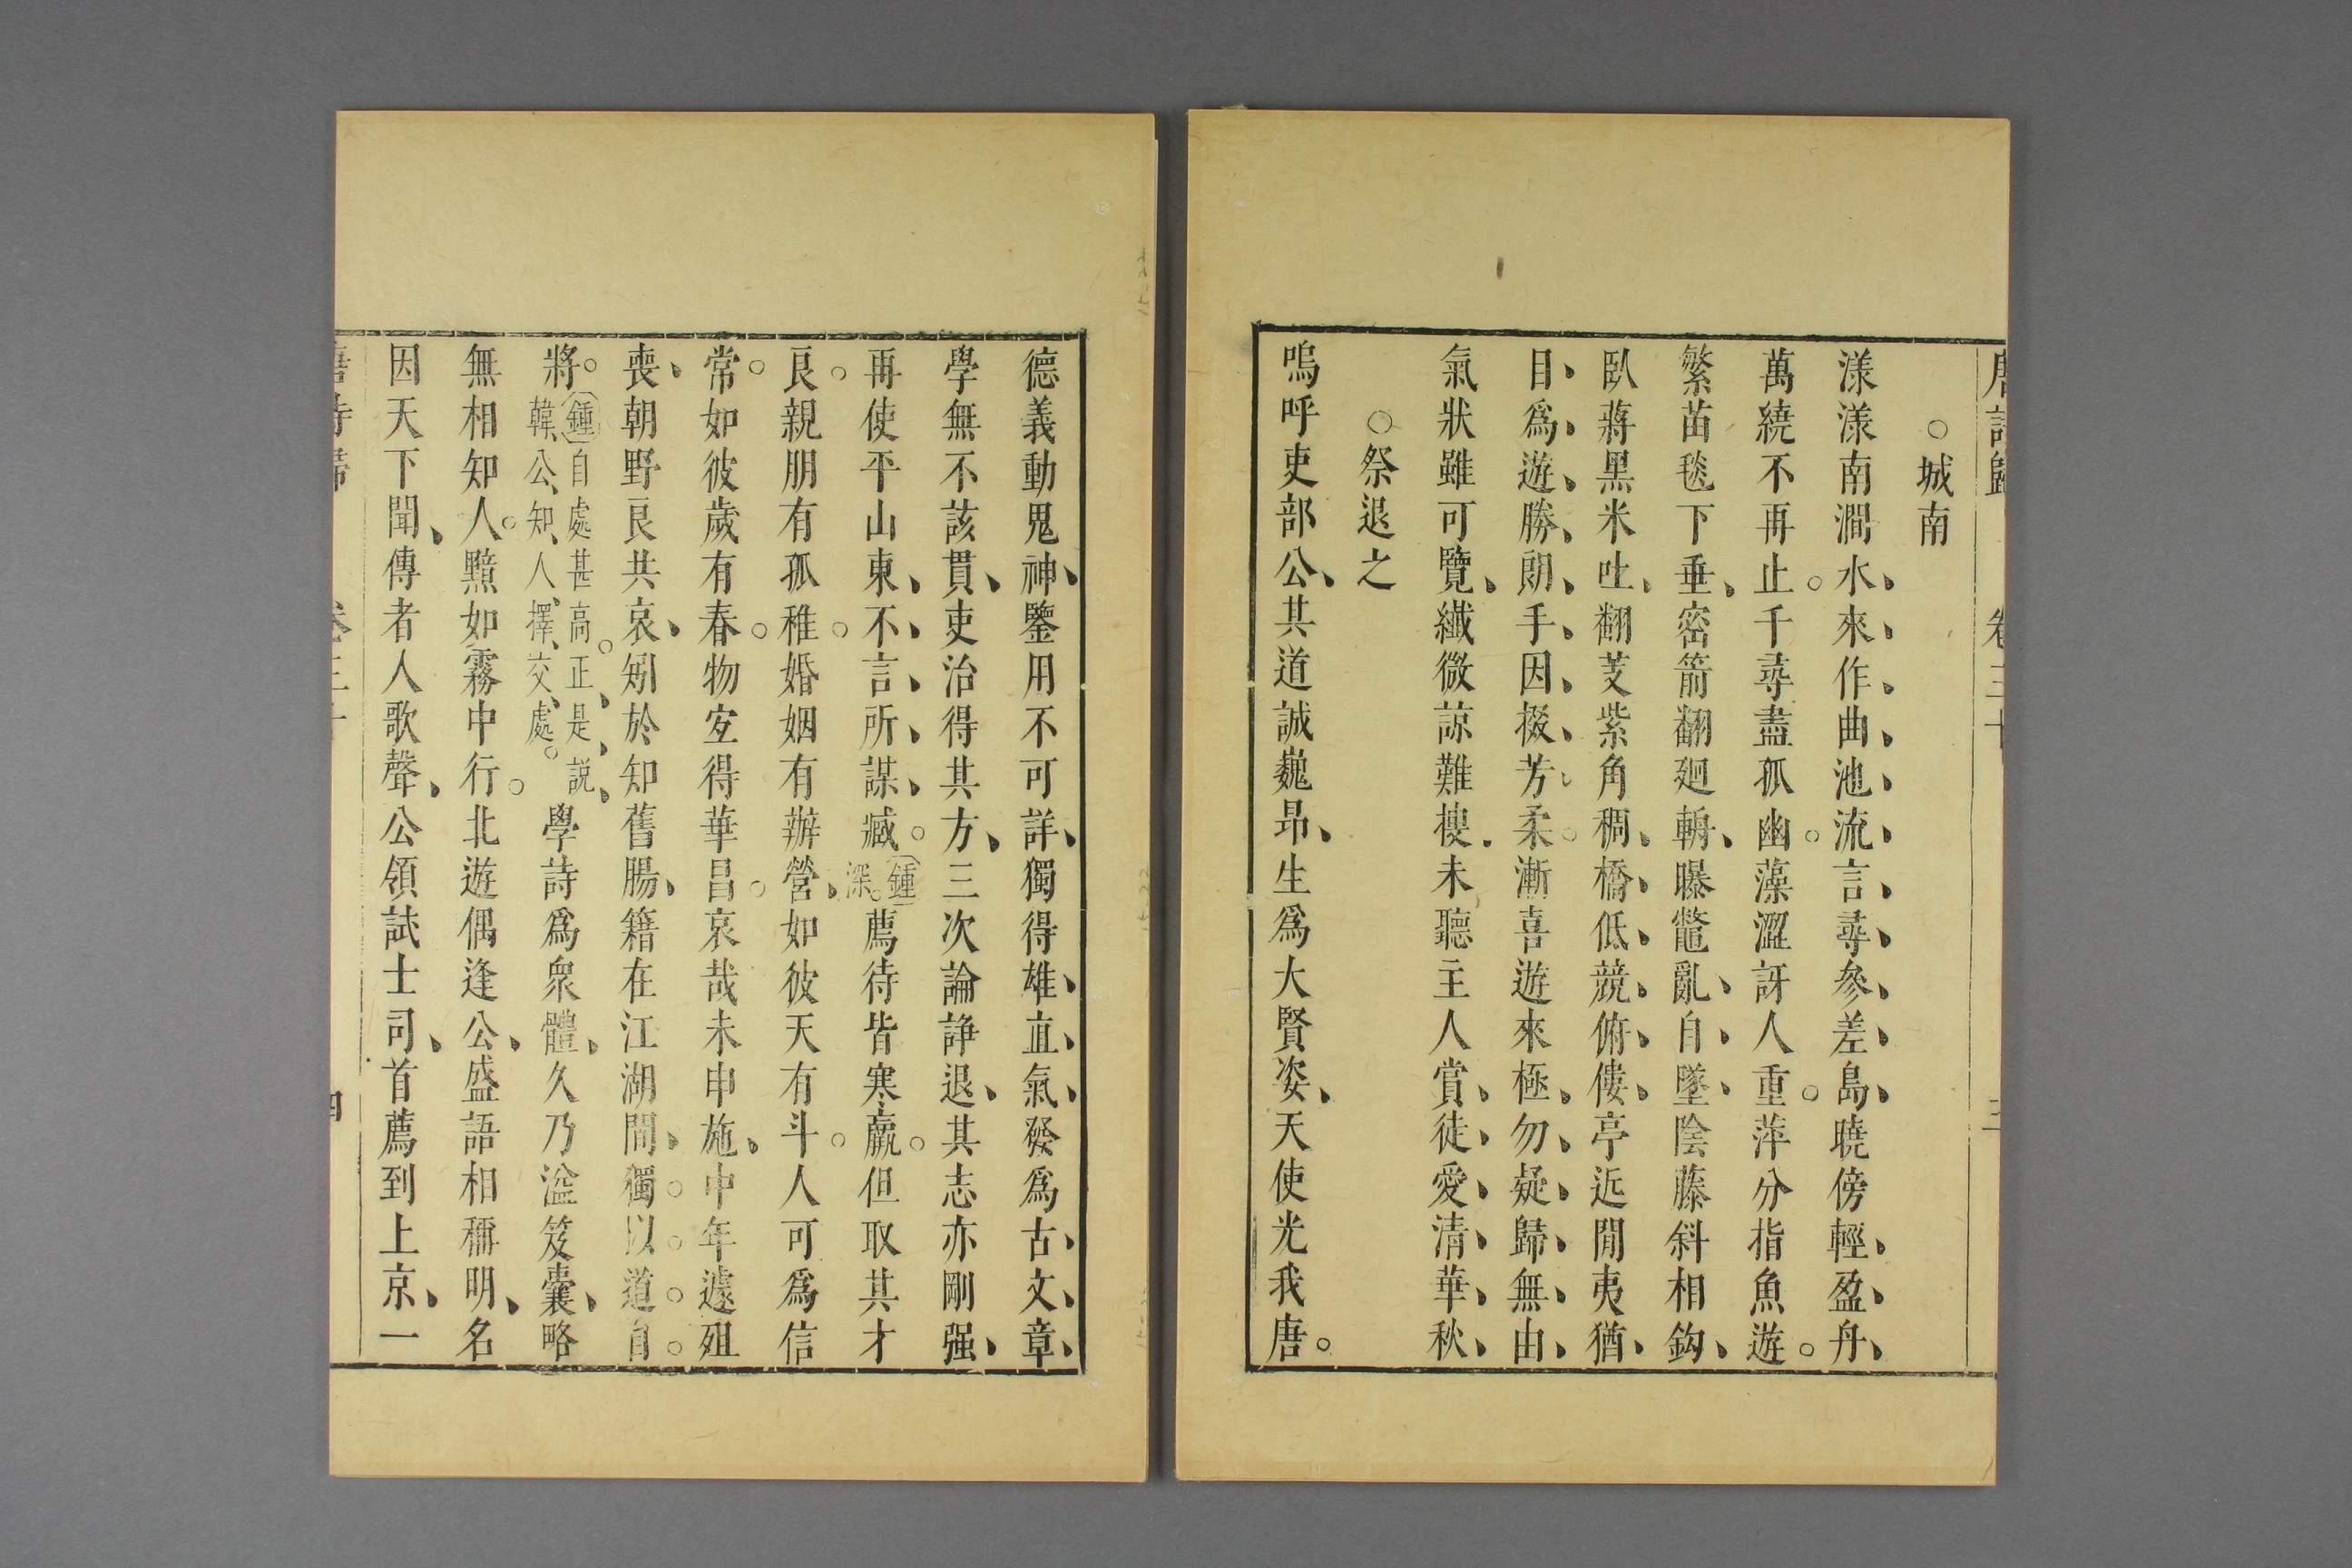 唐詩歸 卷三十 三
○城南
漾漾南澗水來作曲池流言尋參差島曉傍輕盈舟
萬繞不再止千尋盡孤幽藻澀訝人重萍分指魚遊
繁苗毯下垂密箭翻迴輈曝鼈亂自墜陰藤斜相鈎
臥蔣黑米吐翻芰紫角稠橋低競俯僂亭近閒夷猶
目爲遊勝朗手因掇芳柔漸喜遊來極勿疑歸無由
氣狀雖可覽纖微諒難摟未聽主人賞徒愛清華秋
○祭退之
嗚呼吏部公其道誠巍昂生爲大賢姿天使光我唐
德義動鬼神鑒用不可詳獨得雄直氣發爲古文章
學無不該貫吏治得其方三次論諍退其志亦剛强
再使平山東不言所謀臧鍾深薦待皆寒羸但取其才
良親朋有孤稚婚姻有辦營如彼天有斗人可爲信
常如彼歲有春物宜得華昌哀哉未申施中年遽殂
喪朝野良共哀矧於知舊腸籍在江湖間獨以道自
將鍾自處甚高正是說韓公知人擇交處學詩爲衆體久乃溢笈囊略
無相知人黯如霧中行北遊偶逢公盛語相稱明名
因天下聞傳者人歌聲公領試士司首薦到上京一
唐詩歸 卷三十 四